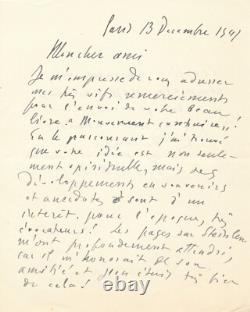 Paris 13 Décembre 1941
Mon cher ami
Je m'empresse de vous adresser
mes très vifs remerciements
pour l'envoi de votre beau
livre "Mouvement
En le parcourant j'ai trouvé
que votre idée est non seule-
ment mais ses
développements en souvenirs
et anecdotes sont d'un
intérêt pour l'époque, très
évocateurs! Les pages sur
m'ont profondément attendri,
car il m'honorait de son
amitié et j'en étais très fier
de cela!